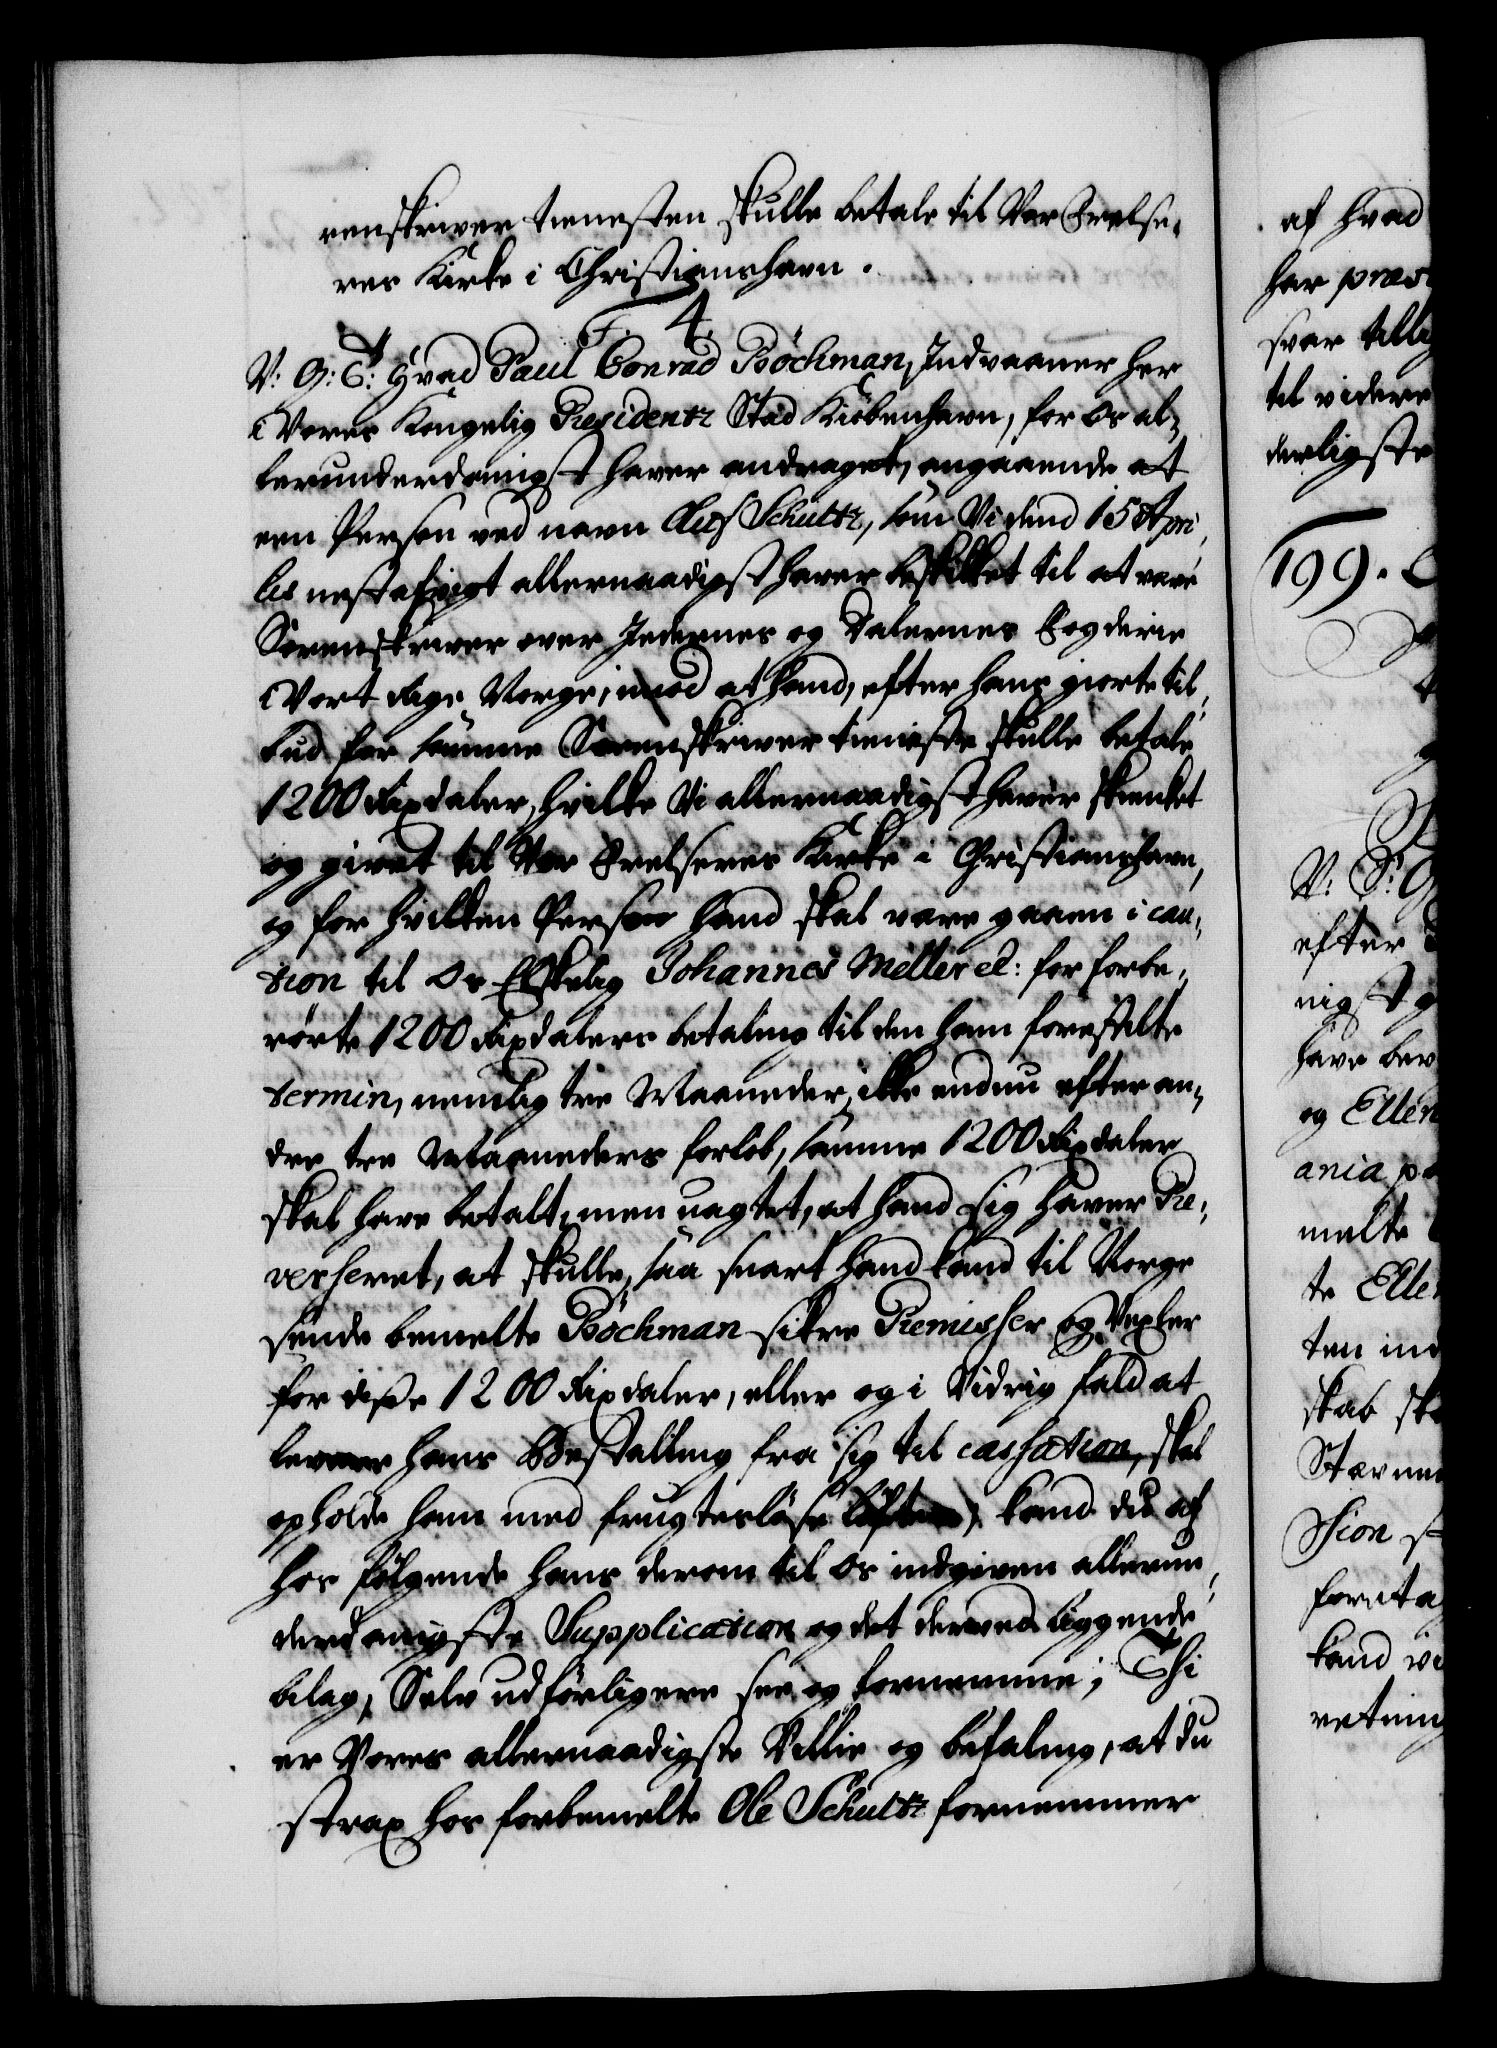 renskriver tienesten skulle betale til Vor Frelse,
res Kirke i Christianshavn.
F. 4.
V: G: T: Hvad Paul Conrad Böckman, Indvaaner her
i Vores Kongelig Residentz Stad Kiöbenhavn, for Os al,
lerunderdanigst haver andraget, angaaende at
een Person ved navn Ole Schultz, som Vi dend 15 Apri,
lis nestafvigt allernaadigst haver beskikket til at være
Sorenskriver over Jedernes og Dalernes Fogderie
i Vort Rige Norge, imod at hand, efter hans giorte til,
bud for samme Sorenskriver tieniste skulle betale
1200 Rixdaler, hvilke Vi allernaadigst haver skienket
og givet til Vor Frelseres Kirke i Christianshavn,
og for hvilken Person hand skal være gaaen i cau,
tion til Os Elskelig Johannes Meller el: for forbe,
rörte 1200 Rixdalers betaling til den ham forestilte
termin, nemlig tre Maaneder, ikke endnu efter an,
dre tre Maaneders forlöb, samme 1200 Rixdaler
skal have betalt, men uagtet, at hand sig haver Re,
verseret, at skulle, saa snart hand kand til Norge
sende bemelte Böckman sikre Remisser og Vexler
for disse 1200 Rixdaler, eller og i Vidrig fald at
levere hans Bestalling fra sig til cassation, skal
opholde ham med frugteslöse löfter; kand du af
hos fölgende hans derom til Os indgiven allerun,
derdanigste Supplication og det derved liggende
bilag, Selv udförligere see og fornemme; Thi
er Vores allernaadigste Villie og befaling, at du
strax hos forbemelte Ole Schultz fornemmer
af hvad
har præs
svar tillig
til videre
derligste
199.
V: S: G
efter
nigst
have bev
og Ellen
ania p
melte
te Ellen
ten ind
skab sk
Stævne
Sion
foreta
kand ve
retning